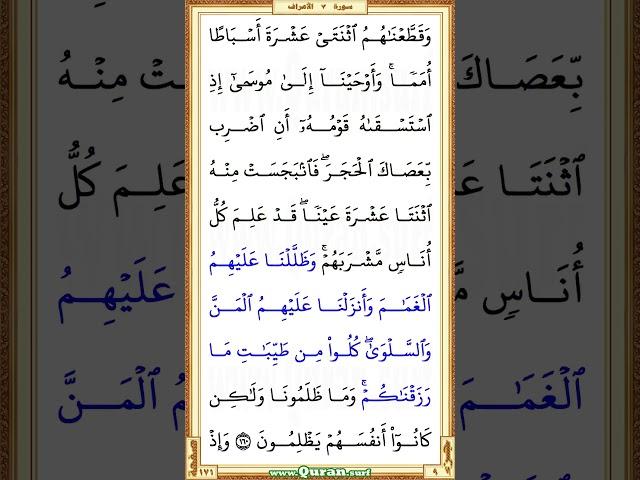 سورة ٧ الأعراف
وَقَطَّعْنَٰهُمُ ٱثْنَتَىْ عَشْرَةَ أَسْبَاطًا
أُمَمًا ۚ وَأَوْحَيْنَآ إِلَىٰ مُوسَىٰٓ إِذِ
ٱسْتَسْقَىٰهُ قَوْمُهُۥٓ أَنِ ٱضْرِب
بِّعَصَاكَ ٱلْحَجَرَ ۖ فَٱنۢبَجَسَتْ مِنْهُ
ٱثْنَتَا عَشْرَةَ عَيْنًا ۖ قَدْ عَلِمَ كُلُّ
أُنَاسٍ مَّشْرَبَهُمْ ۚ وَظَلَّلْنَا عَلَيْهِمُ
ٱلْغَمَٰمَ وَأَنزَلْنَا عَلَيْهِمُ ٱلْمَنَّ
وَٱلسَّلْوَىٰ ۖ كُلُوا۟ مِن طَيِّبَٰتِ مَا
رَزَقْنَٰكُمْ ۚ وَمَا ظَلَمُونَا وَلَٰكِن
كَانُوٓا۟ أَنفُسَهُمْ يَظْلِمُونَ ١٦٠ وَإِذْ
صفحة ١٧١
www.Quran.surf
جزء ٩